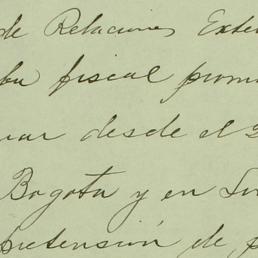 de Relaciones Exte
fiscal prom
uar desde el
Bogota y en
pretensión de